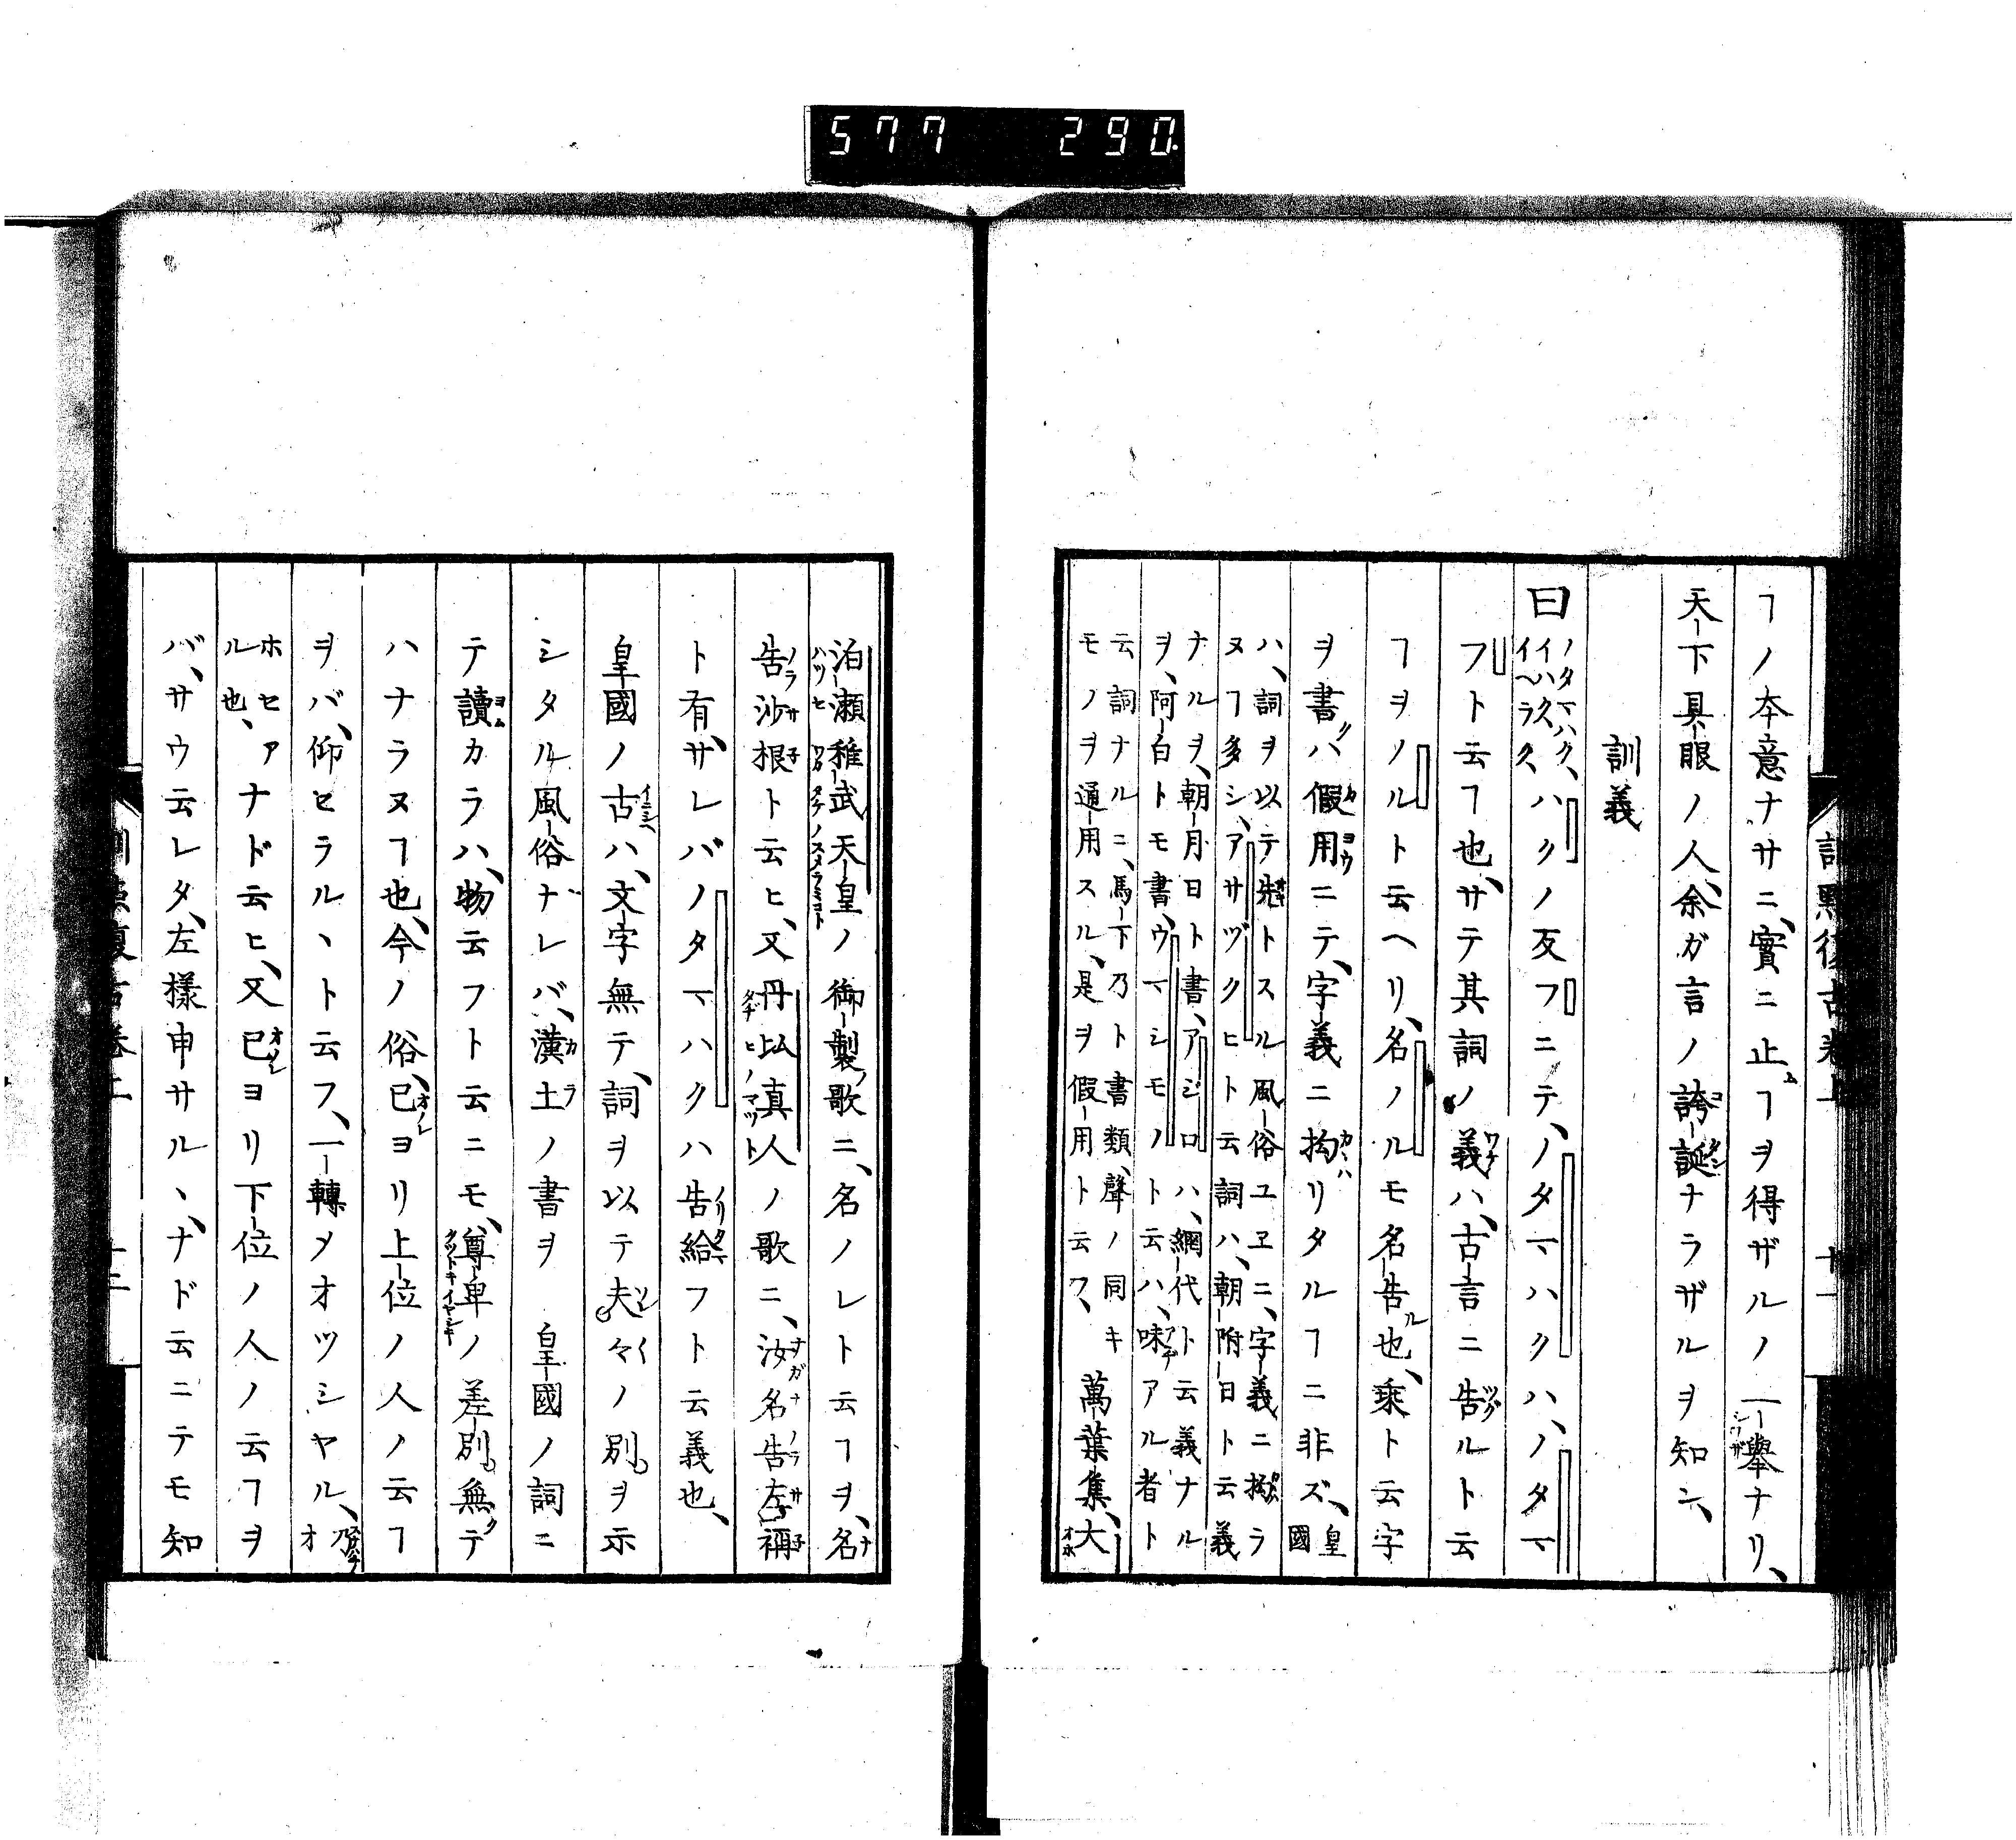 577 290
ヿノ本意ナサニ、實ニ止ムヿヲ得ザルノ一擧ナリ、
天下具眼ノ人、余ガ言ノ誇誕ナラザルヲ知ン、
訓義
曰 ノタマハク、イハク、イヘラク、 ハクノ反フニテ、ノタマハクハ、ノタマ
フト云ヿ也、サテ其詞ノ義ハ、古言ニ告ルト云
ヿヲノルト云ヘリ、名ノルモ名告ル也、乘ト云字
ヲ書クハ假用ニテ、字義ニ拘リタルヿニ非ズ、皇國
ハ、詞ヲ以テ先トスル風俗ユヱニ、字義ニ拘ラ
ヌヿ多シ、アサヅクヒト云詞ハ、朝附日ト云義
ナルヲ、朝月日ト書、アジロハ、網代ト云義ナル
ヲ、阿白トモ書、ウマシモノト云ハ、味アル者ト
云詞ナルニ、馬下乃ト書類、聲ノ同キ
モノヲ通用スル、是ヲ假用ト云フ、萬葉集、大
泊瀬稚武天皇ノ御製ノ歌ニ、名ノレト云ヿヲ、名
告沙根ト云ヒ、又丹比真人ノ歌ニ、汝名告左禰
ト有、サレバノタマハクハ告給フト云義也、
皇國ノ古ハ、文字無テ、詞ヲ以テ夫々ノ別ヲ示
シタル風俗ナレバ、漢土ノ書ヲ 皇國ノ詞ニ
テ讀カラハ、物云フト云ニモ、尊卑ノ差別無クテ
ハナラヌヿ也、今ノ俗、已ヨリ上位ノ人ノ云ヿ
ヲバ、仰セラルヽト云フ、一轉メオツシヤル、オ
ホセアル也、ナド云ヒ、又已ヨリ下位ノ人ノ云ヿヲ
バ、サウ云レタ、左様申サルヽ、ナド云ニテモ知